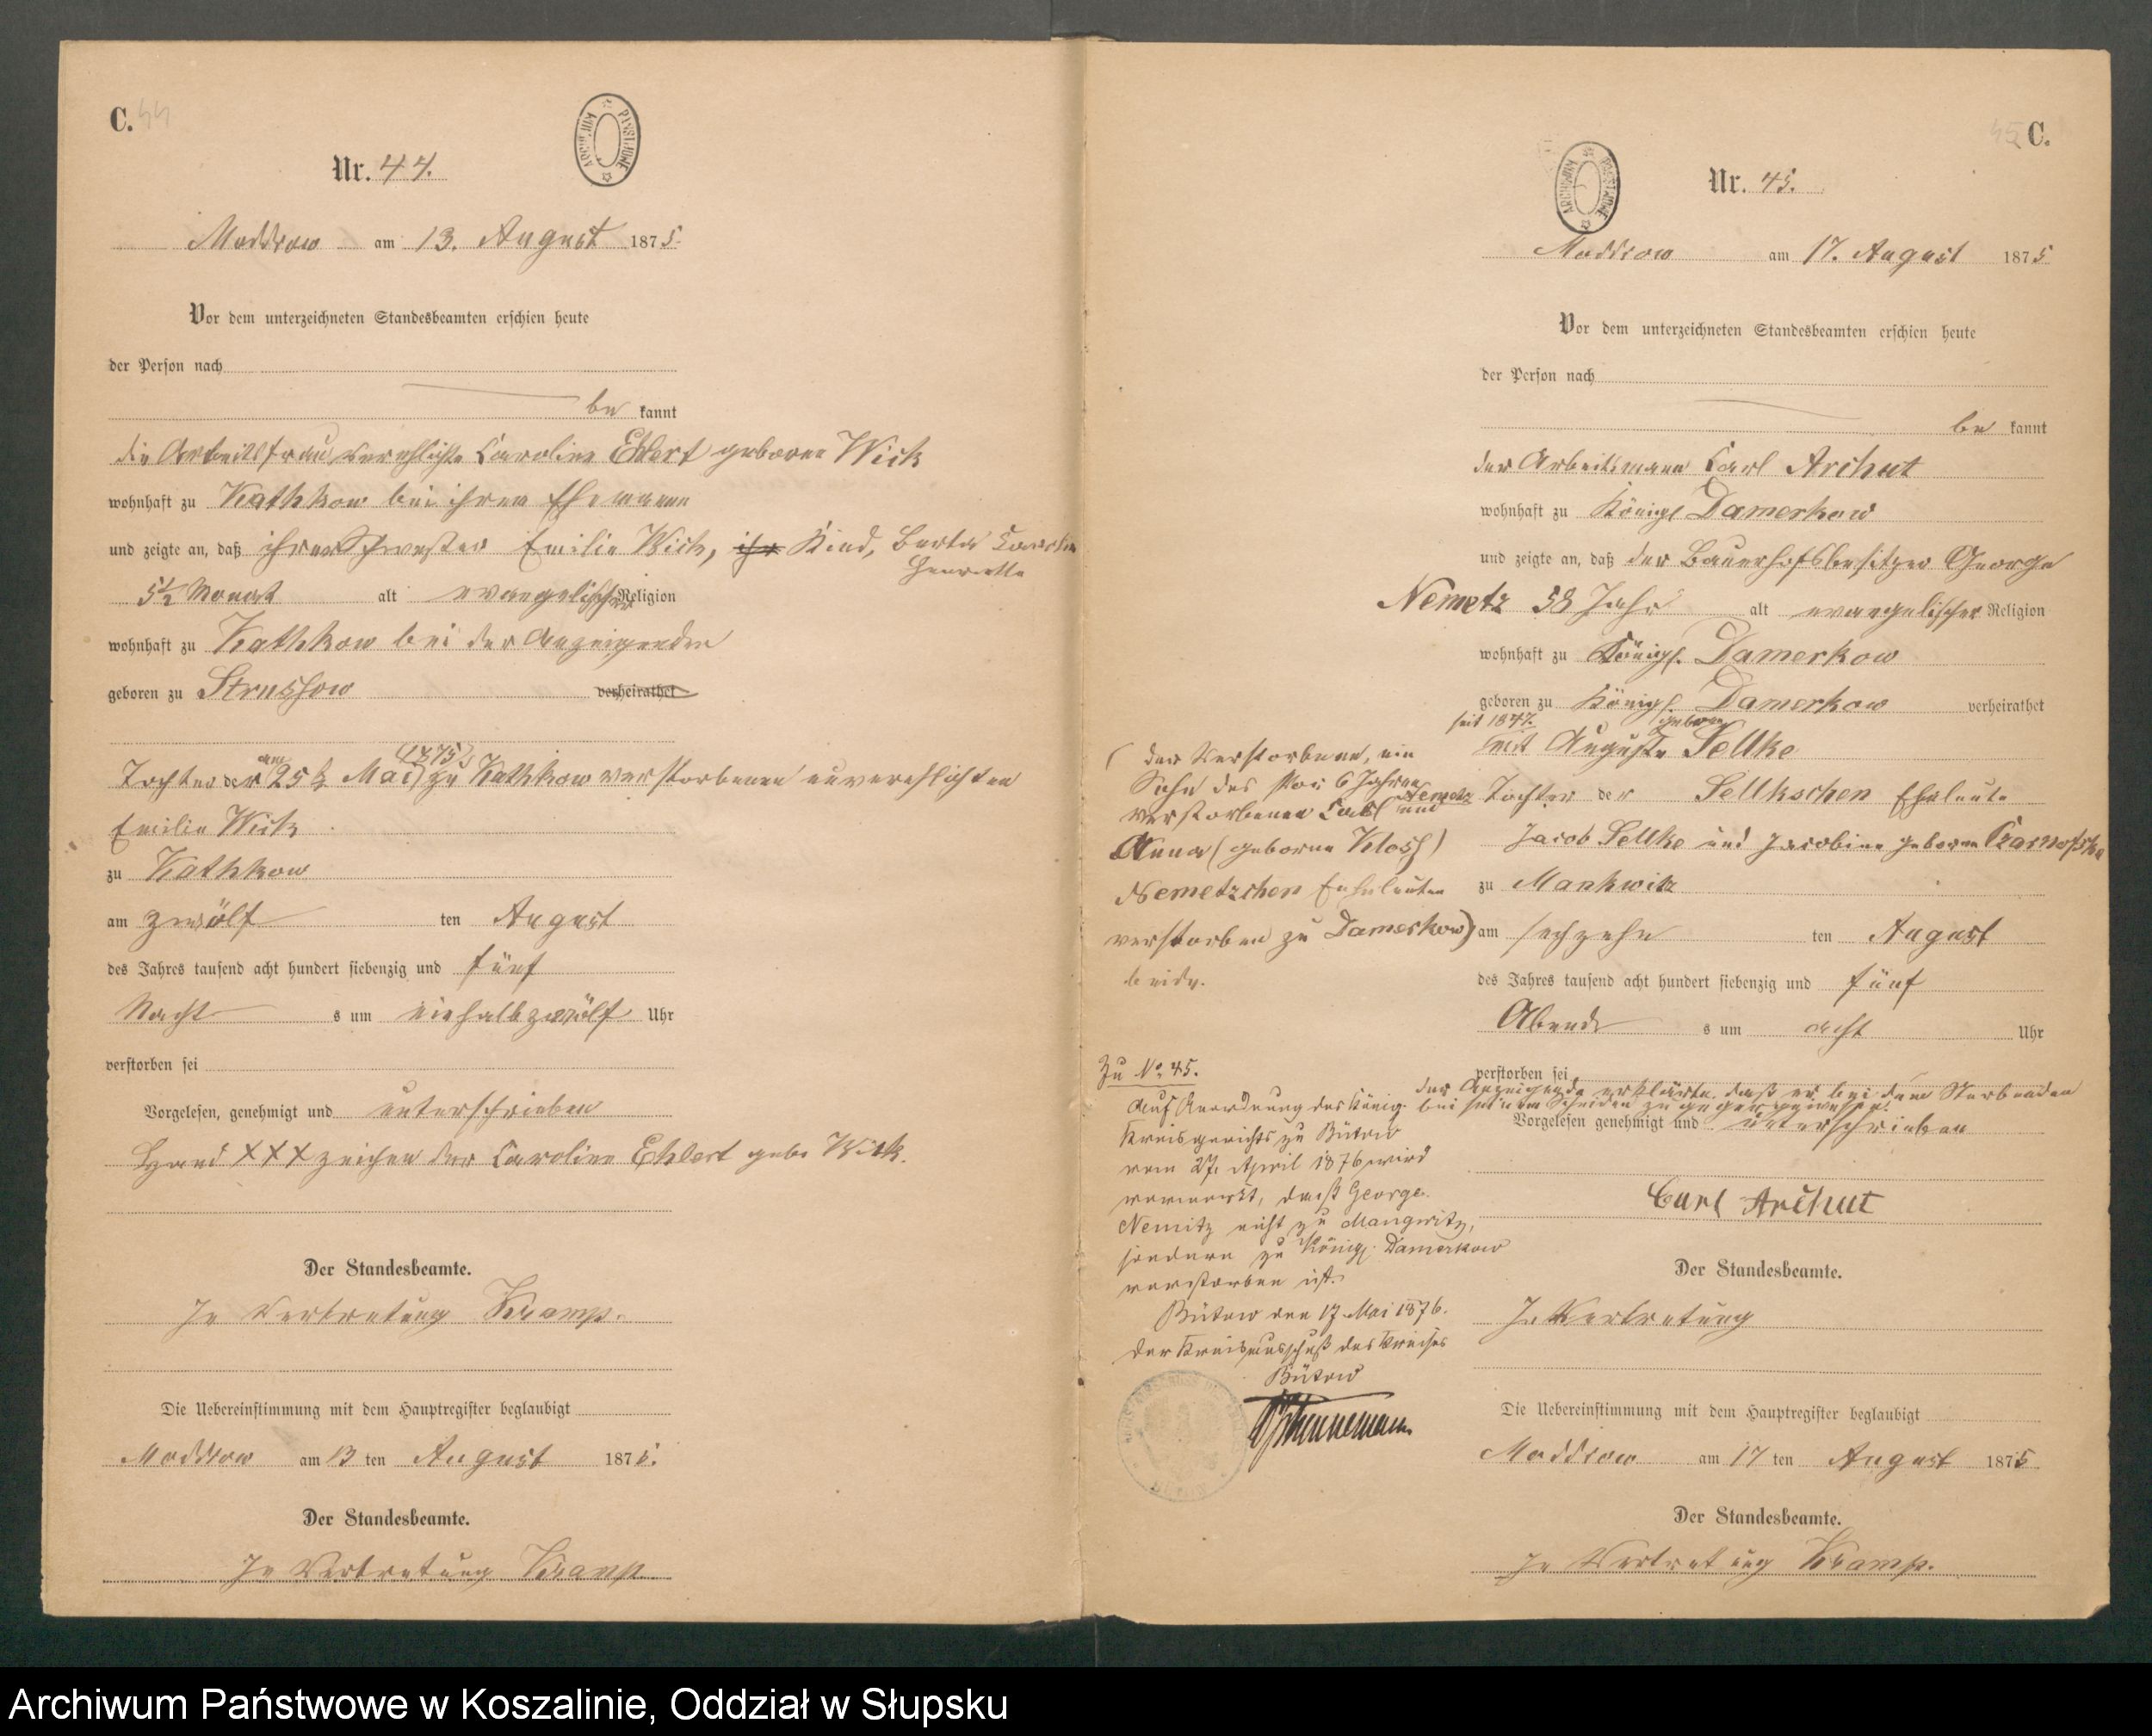 C. 44
ARCHIWUM PAŃSTWOWE
Nr. 44.
Moddrow am 13. August 1875
Vor dem unterzeichneten Standesbeamten erschien heute
der Person nach
be kannt
die Arbeitsfrau verehlichte Caroline Ehlert geborne Wick
wohnhaft zu Kathkow bei ihrem Ehemann
und zeigte an, daß ihrer Schwester Emilie Wick, ihr Kind, Berta
Henriette
5½ Monat alt evangelischer Religion
wohnhaft zu Kathkow bei der Anzeigenden
geboren zu Strussow verheirathet
Tochter der am 25t Mai (1875) zu Kathkow verstorbenen unverehlichten
Emilie Wick
zu Kathkow
am zwölf ten August
des Jahres tausend acht hundert siebenzig und fünf
Nacht s um einhalbzwölf Uhr
verstorben sei
Vorgelesen, genehmigt und unterschrieben
Hand XXX zeichen der Caroline Ehlert geb. Wick.
Der Standesbeamte.
In Vertretung Kramp.
Die Uebereinstimmung mit dem Hauptregister beglaubigt
Moddrow am 13 ten August 1875.
Der Standesbeamte.
In Vertretung Kramp
45 C.
ARCHIWUM PAŃSTWOWE
Nr. 45.
Moddrow am 17. August 1875
Vor dem unterzeichneten Standesbeamten erschien heute
der Person nach
be kannt
der Arbeitsmann Carl Archut
wohnhaft zu Königl Damerkow
und zeigte an, daß der Bauerhofsbesitzer George
Nemetz 58 Jahr alt evangelischer Religion
wohnhaft zu Königl. Damerkow
geboren zu Königl. Damerkow verheirathet
seit 1847. mit Auguste geborne Sellke
Tochter der Sellkschen Eheleute
Jacob Sellke und Jacobine geborne
zu Mankwitz
am sechzehn ten August
des Jahres tausend acht hundert siebenzig und fünf
Abend s um acht Uhr
verstorben sei
der Anzeigende erklärte, daß er bei dem Sterbenden
bei seinem Scheiden zugegen gewesen.
Vorgelesen genehmigt und unterschrieben
Carl Archut
Der Standesbeamte.
In Vertretung
Die Uebereinstimmung mit dem Hauptregister beglaubigt
Moddrow am 17 ten August 1875
Der Standesbeamte.
In Vertretung Kramp.
( der Verstorbene, ein
Sohn des vor 6 Jahren
verstorbenen Carl Nemetz und
Anna (geborne Kloss)
Nemetzschen Eheleuten
verstorben zu Damerkow)
beide.
Zu No 45.
Auf Anordnung des Königl.
Kreisgerichts zu Bütow
vom 27. April 1876 wird
vermerkt, daß George
Nemitz nicht zu Mangwitz,
sondern zu Königl. Damerkow
verstorben ist.
Bütow den 17. Mai 1876.
Der Kreisausschuß des Kreises
Bütow
Archiwum Państwowe w Koszalinie, Oddział w Słupsku